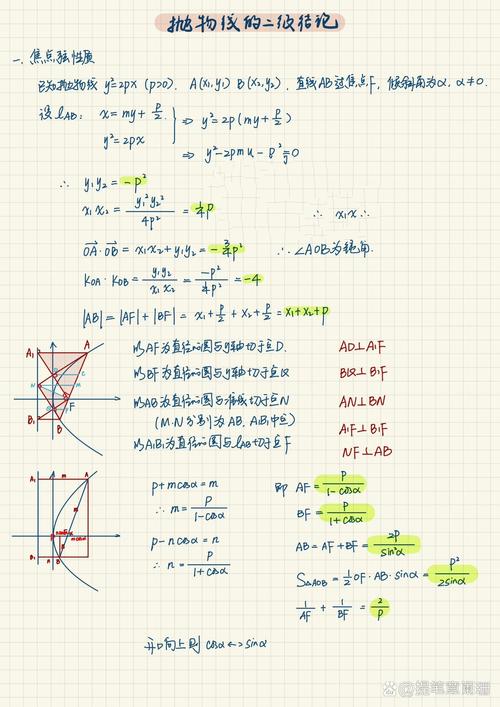 抛物线的二级结论
一. 焦点弦性质
已知抛物线 y²=2px (p>0). A(x₁,y₁) B(x₂,y₂). 直线AB过焦点F, 倾斜角为α, α≠0.
设 lAB: x=my+p/2
y²=2px
⇒ y²=2p(my+p/2)
⇒ y²-2pmy-p²=0
∴ y₁y₂=-p²
x₁x₂=y₁²y₂²/4p²=¼p
∴ x₁x∴
OA·OB=x₁x₂+y₁y₂=-¾p² ∴∠AOB为钝角.
KOA·KOB=y₁y₂/x₁x₂=-p²/¼p²=-4
|AB|=|AF|+|BF|=x₁+p/2+x₂+p/2=x₁+x₂+p
以AF为直径的圆与y轴切于点D. AD⊥A₁F
以BF为直径的圆与y轴切于点Q BQ⊥B₁F
以AB为直径的圆与准线切于点N AN⊥BN
(M.N分别为AB. A₁B₁中点) A₁F⊥B₁F
以A₁B₁为直径的圆与lAB切于点F NF⊥AB
A₁
A
N
M
F
B₁
B
p+mcosα=m
∴ m=p/1-cosα
p-ncosα=n
∴ n=p/1+cosα
即 AF=p/1-cosα
BF=p/1+cosα
AB=AF+BF=2p/sin²α
S△AOB=½OF·AB·sinα=p²/2sinα
1/AF+1/BF=2/p
A₁
m
A
m
B₁
n
B
开口向上则 cosα↔sinα